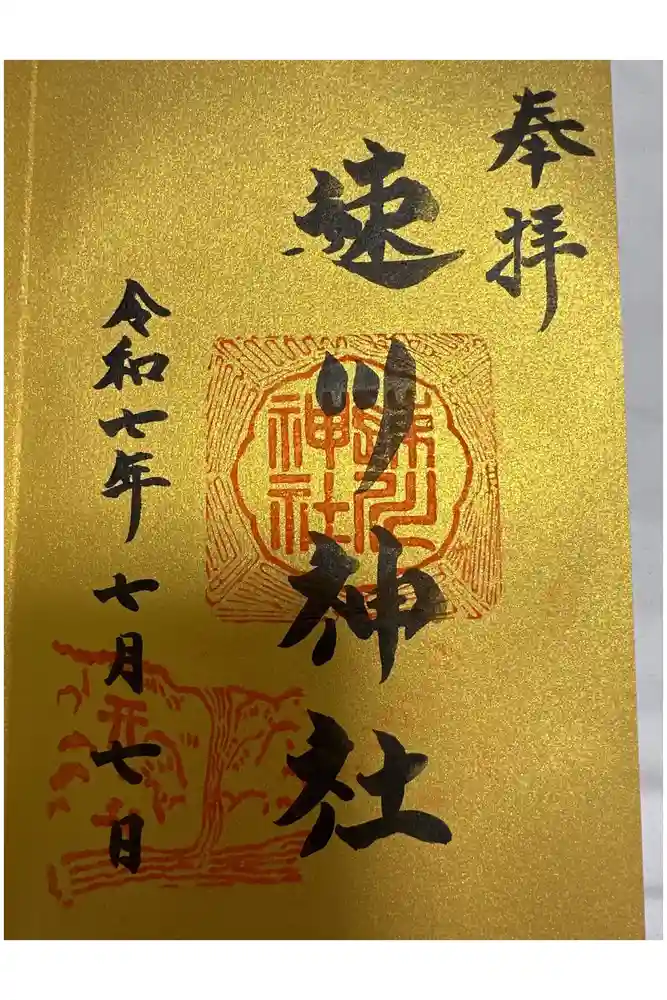 奉拝
速川神社
速川
神社
令和七年 七月七日